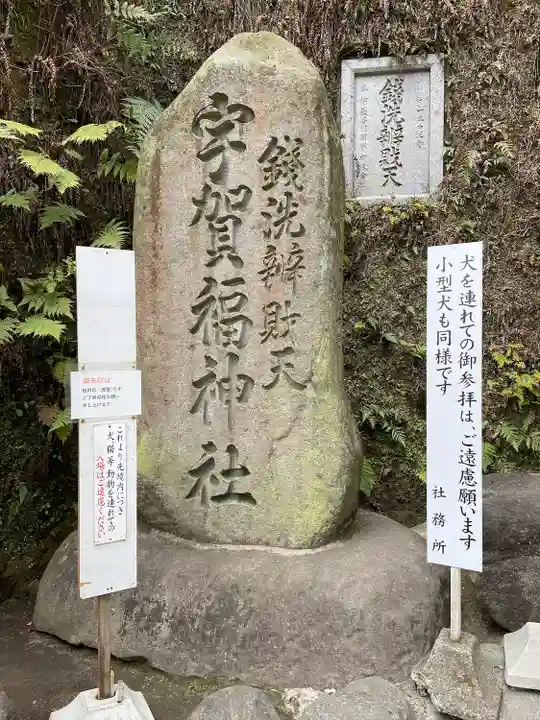 錢洗辨財天
宇賀福神社
錢洗辨財天
犬を連れての御参拝は、ご遠慮願います
小型犬も同様です
社務所
これより先境内につき
犬・猫等動物を連れての
入場はご遠慮ください